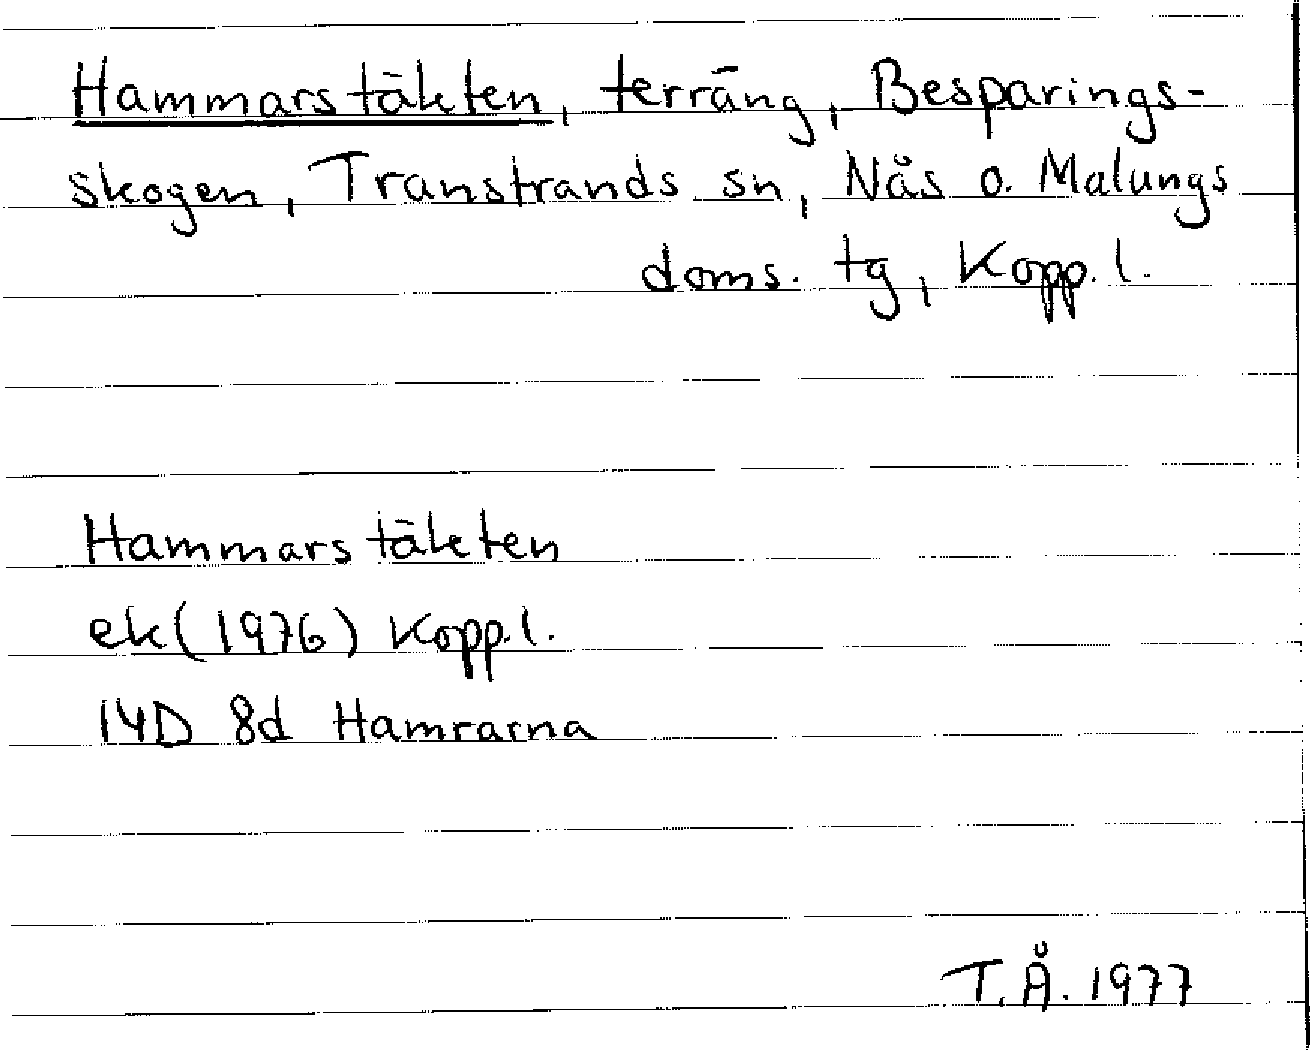 Hammarstäkten, terräng, Besparings-
skogen, Transtrands sn, Nås o. Malungs
doms. tg, Kopp. l.
Hammarstäkten
ek (1976) Kopp. l.
14D 8d Hamrarna
T. Å. 1977